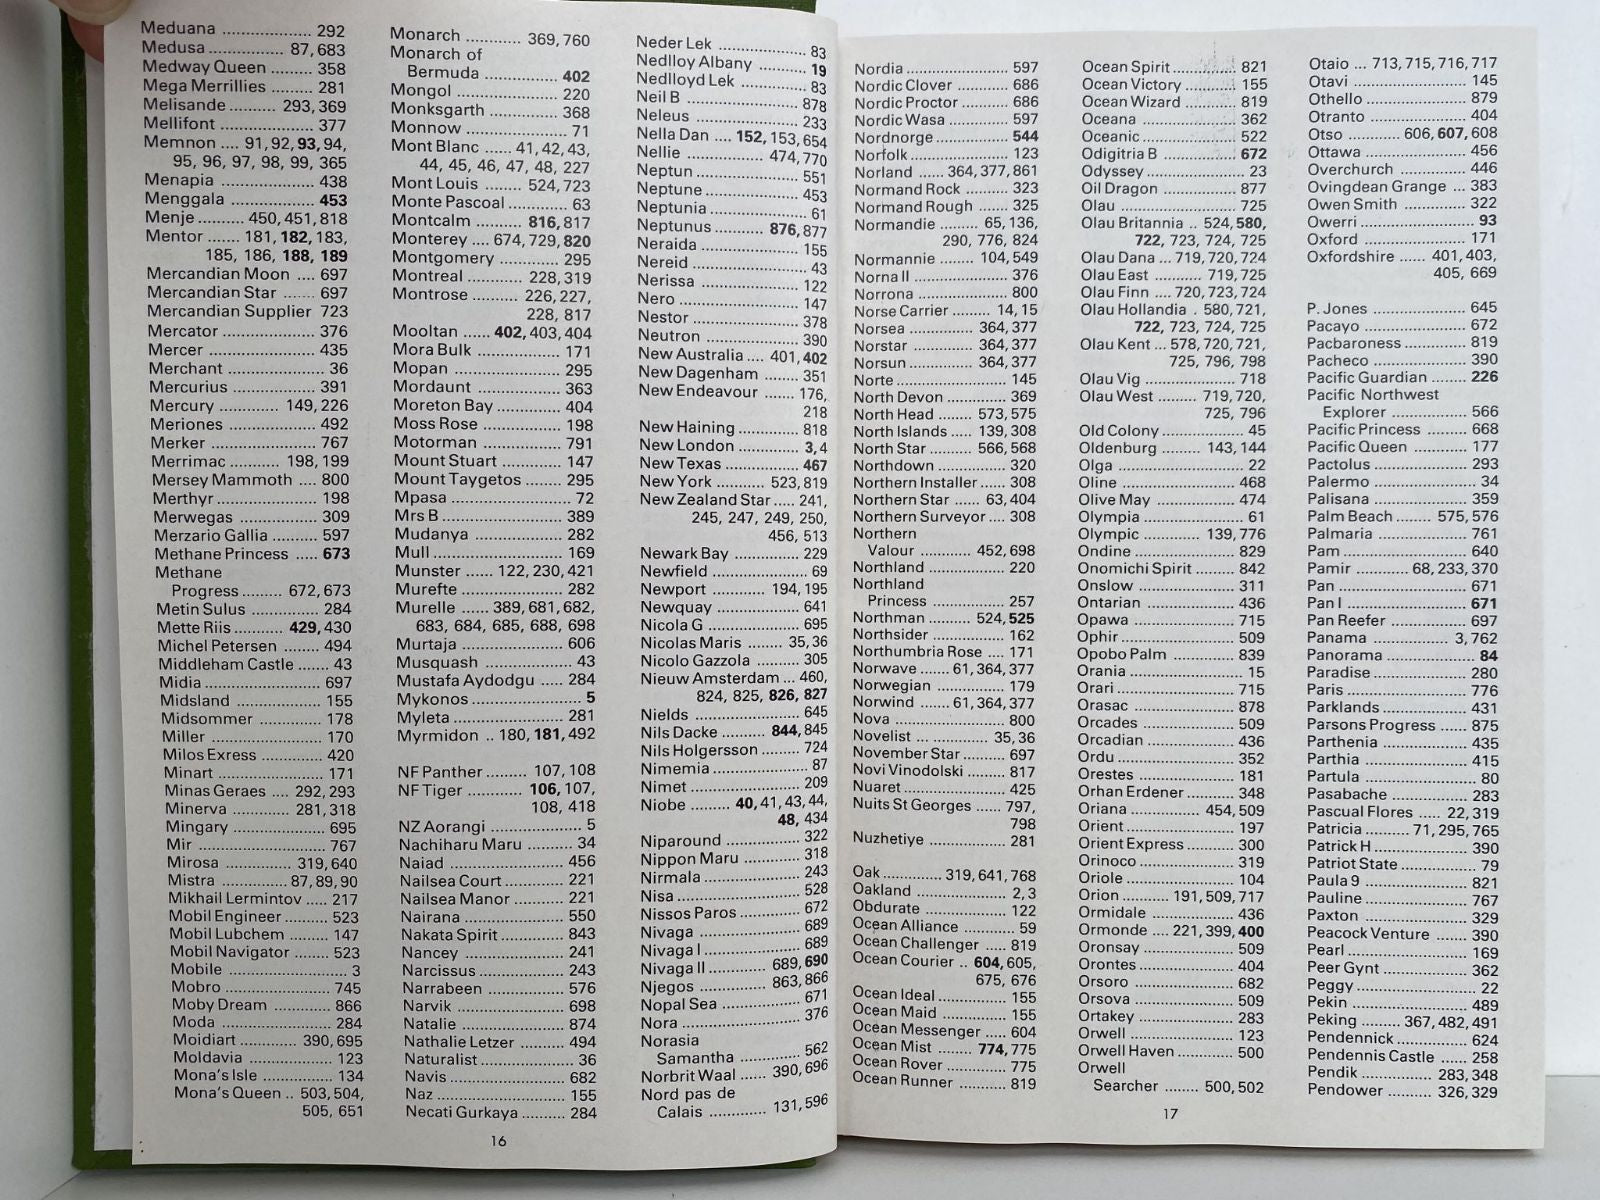 Meduana .................. 292
Medusa ............... 87, 683
Medway Queen ......... 358
Mega Merrillies .......... 281
Melisande .......... 293, 369
Mellifont ................... 377
Memnon .... 91, 92, 93, 94,
95, 96, 97, 98, 99, 365
Menapia .................. 438
Menggala ................. 453
Menje ......... 450, 451, 818
Mentor ....... 181, 182, 183,
185, 186, 188, 189
Mercandian Moon .... 697
Mercandian Star ....... 697
Mercandian Supplier 723
Mercator .................. 376
Mercer ..................... 435
Merchant ................... 36
Mercurius ................. 391
Mercury ............. 149, 226
Meriones .................. 492
Merker ..................... 767
Merrimac ........... 198, 199
Mersey Mammoth .... 800
Merthyr .................... 198
Merwegas ................ 309
Merzario Gallia .......... 597
Methane Princess ..... 673
Methane
Progress ......... 672, 673
Metin Sulus .............. 284
Mette Riis ........... 429, 430
Michel Petersen ........ 494
Middleham Castle ...... 43
Midia ....................... 697
Midsland .................. 155
Midsommer .............. 178
Miller ....................... 170
Milos Exress ............. 420
Minart ...................... 171
Minas Geraes .... 292, 293
Minerva ............. 281, 318
Mingary .................... 695
Mir ........................... 767
Mirosa ............... 319, 640
Mistra ............. 87, 89, 90
Mikhail Lermintov ..... 217
Mobil Engineer ......... 523
Mobil Lubchem ......... 147
Mobil Navigator ........ 523
Mobile ........................ 3
Mobro ...................... 745
Moby Dream ............. 866
Moda ....................... 284
Moidiart ............. 390, 695
Moldavia .................. 123
Mona's Isle ............... 134
Mona's Queen .. 503, 504,
505, 651
Monarch ............ 369, 760
Monarch of
Bermuda ............... 402
Mongol .................... 220
Monksgarth .............. 368
Monnow .................... 71
Mont Blanc ..... 41, 42, 43,
44, 45, 46, 47, 48, 227
Mont Louis ........ 524, 723
Monte Pascoal ........... 63
Montcalm .......... 816, 817
Monterey .... 674, 729, 820
Montgomery ............. 295
Montreal ............ 228, 319
Montrose ........ 226, 227,
228, 817
Mooltan ..... 402, 403, 404
Mora Bulk ................. 171
Mopan ..................... 295
Mordaunt ................. 363
Moreton Bay ............. 404
Moss Rose ................ 198
Motorman ................ 791
Mount Stuart ............ 147
Mount Taygetos ........ 295
Mpasa ....................... 72
Mrs B ....................... 389
Mudanya .................. 282
Mull ......................... 169
Munster ...... 122, 230, 421
Murefte .................... 282
Murelle ..... 389, 681, 682,
683, 684, 685, 688, 698
Murtaja .................... 606
Musquash .................. 43
Mustafa Aydodgu ..... 284
Mykonos ..................... 5
Myleta ...................... 281
Myrmidon .. 180, 181, 492
NF Panther ......... 107, 108
NF Tiger ............ 106, 107,
108, 418
NZ Aorangi .................. 5
Nachiharu Maru ......... 34
Naiad ....................... 456
Nailsea Court ............. 221
Nailsea Manor ........... 221
Nairana .................... 550
Nakata Spirit .............. 843
Nancey ..................... 241
Narcissus .................. 243
Narrabeen ................ 576
Narvik ...................... 698
Natalie ..................... 874
Nathalie Letzer .......... 494
Naturalist .................. 36
Navis ....................... 682
Naz .......................... 155
Necati Gurkaya .......... 284
Neder Lek .................. 83
Nedlloy Albany .......... 19
Nedlloyd Lek .............. 83
Neil B ....................... 878
Neleus ..................... 233
Nella Dan .... 152, 153, 654
Nellie ................. 474, 770
Neptun ..................... 551
Neptune ................... 453
Neptunia ................... 61
Neptunus .......... 876, 877
Neraida .................... 155
Nereid ....................... 43
Nerissa ..................... 122
Nero ........................ 147
Nestor ...................... 378
Neutron .................... 390
New Australia .... 401, 402
New Dagenham ........ 351
New Endeavour .... 176,
218
New Haining ............. 818
New London ............ 3, 4
New Texas ................ 467
New York ........... 523, 819
New Zealand Star ..... 241,
245, 247, 249, 250,
456, 513
Newark Bay .............. 229
Newfield .................... 69
Newport ............ 194, 195
Newquay .................. 641
Nicola G ................... 695
Nicolas Maris ........ 35, 36
Nicolo Gazzola .......... 305
Nieuw Amsterdam ... 460,
824, 825, 826, 827
Nields ...................... 645
Nils Dacke .......... 844, 845
Nils Holgersson ......... 724
Nimemia .................... 87
Nimet ...................... 209
Niobe ......... 40, 41, 43, 44,
48, 434
Niparound ................ 322
Nippon Maru ............. 318
Nirmala .................... 243
Nisa ......................... 528
Nissos Paros ............. 672
Nivaga ...................... 689
Nivaga I .................... 689
Nivaga II ............ 689, 690
Njegos ............... 863, 866
Nopal Sea ................. 671
Nora ........................ 376
Norasia
Samantha .............. 562
Norbrit Waal ...... 390, 696
Nord pas de
Calais ............. 131, 596
16
Nordia ...................... 597
Nordic Clover ............ 686
Nordic Proctor ........... 686
Nordic Wasa ............. 597
Nordnorge ................ 544
Norfolk ..................... 123
Norland ...... 364, 377, 861
Normand Rock .......... 323
Normand Rough ........ 325
Normandie ......... 65, 136,
290, 776, 824
Normannie ........ 104, 549
Norna II .................... 376
Norrona .................... 800
Norse Carrier ......... 14, 15
Norsea ............... 364, 377
Norstar .............. 364, 377
Norsun ............... 364, 377
Norte ....................... 145
North Devon ............. 369
North Head ........ 573, 575
North Islands ..... 139, 308
North Star .......... 566, 568
Northdown ............... 320
Northern Installer ...... 308
Northern Star ...... 63, 404
Northern Surveyor .... 308
Northern
Valour ............ 452, 698
Northland ................. 220
Northland
Princess ................. 257
Northman .......... 524, 525
Northsider ................ 162
Northumbria Rose .... 171
Norwave ..... 61, 364, 377
Norwegian ................ 179
Norwind ...... 61, 364, 377
Nova ........................ 800
Novelist ............... 35, 36
November Star .......... 697
Novi Vinodolski ......... 817
Nuaret ...................... 425
Nuits St Georges ...... 797,
798
Nuzhetiye ................. 281
Oak .............. 319, 641, 768
Oakland .................. 2, 3
Obdurate .................. 122
Ocean Alliance ........... 59
Ocean Challenger ...... 819
Ocean Courier .. 604, 605,
675, 676
Ocean Ideal ............... 155
Ocean Maid .............. 155
Ocean Messenger ..... 604
Ocean Mist ........ 774, 775
Ocean Rover ............. 775
Ocean Runner ........... 819
Ocean Spirit .............. 821
Ocean Victory ........... 155
Ocean Wizard ........... 819
Oceana ..................... 362
Oceanic .................... 522
Odigitria B ................ 672
Odyssey .................... 23
Oil Dragon ................ 877
Olau ......................... 725
Olau Britannia .. 524, 580,
722, 723, 724, 725
Olau Dana ... 719, 720, 724
Olau East ........... 719, 725
Olau Finn .... 720, 723, 724
Olau Hollandia . 580, 721,
722, 723, 724, 725
Olau Kent ... 578, 720, 721,
725, 796, 798
Olau Vig ................... 718
Olau West ......... 719, 720,
725, 796
Old Colony ................. 45
Oldenburg ......... 143, 144
Olga .......................... 22
Oline ........................ 468
Olive May ................. 474
Olympia .................... 61
Olympic ............. 139, 776
Ondine ..................... 829
Onomichi Spirit .......... 842
Onslow ..................... 311
Ontarian ................... 436
Opawa ..................... 715
Ophir ....................... 509
Opobo Palm .............. 839
Orania ....................... 15
Orari ........................ 715
Orasac ...................... 878
Orcades .................... 509
Orcadian ................... 436
Ordu ........................ 352
Orestes ..................... 181
Orhan Erdener ........... 348
Oriana ............... 454, 509
Orient ....................... 197
Orient Express ........... 300
Orinoco .................... 319
Oriole ....................... 104
Orion .......... 191, 509, 717
Ormidale .................. 436
Ormonde .... 221, 399, 400
Oronsay .................... 509
Orontes .................... 404
Orsoro ...................... 682
Orsova ...................... 509
Ortakey .................... 283
Orwell ...................... 123
Orwell Haven ............ 500
Orwell
Searcher ........ 500, 502
Otaio ... 713, 715, 716, 717
Otavi ........................ 145
Othello ..................... 879
Otranto ..................... 404
Otso ........... 606, 607, 608
Ottawa ..................... 456
Overchurch ............... 446
Ovingdean Grange ... 383
Owen Smith .............. 322
Owerri ....................... 93
Oxford ...................... 171
Oxfordshire ...... 401, 403,
405, 669
P. Jones ................... 645
Pacayo ..................... 672
Pacbaroness .............. 819
Pacheco .................... 390
Pacific Guardian ........ 226
Pacific Northwest
Explorer ................. 566
Pacific Princess ......... 668
Pacific Queen ............ 177
Pactolus ................... 293
Palermo ..................... 34
Palisana .................... 359
Palm Beach ........ 575, 576
Palmaria ................... 761
Pam ......................... 640
Pamir ............ 68, 233, 370
Pan .......................... 671
Pan I ........................ 671
Pan Reefer ................ 697
Panama ................. 3, 762
Panorama .................. 84
Paradise .................... 280
Paris ........................ 776
Parklands .................. 431
Parsons Progress ....... 875
Parthenia .................. 435
Parthia ..................... 415
Partula ...................... 80
Pasabache ................ 283
Pascual Flores ..... 22, 319
Patricia .......... 71, 295, 765
Patrick H ................... 390
Patriot State .............. 79
Paula 9 ..................... 821
Pauline ..................... 767
Paxton ...................... 329
Peacock Venture ....... 390
Pearl ........................ 169
Peer Gynt ................. 362
Peggy ....................... 22
Pekin ....................... 489
Peking ......... 367, 482, 491
Pendennick ............... 624
Pendennis Castle ...... 258
Pendik ............... 283, 348
Pendower .......... 326, 329
17